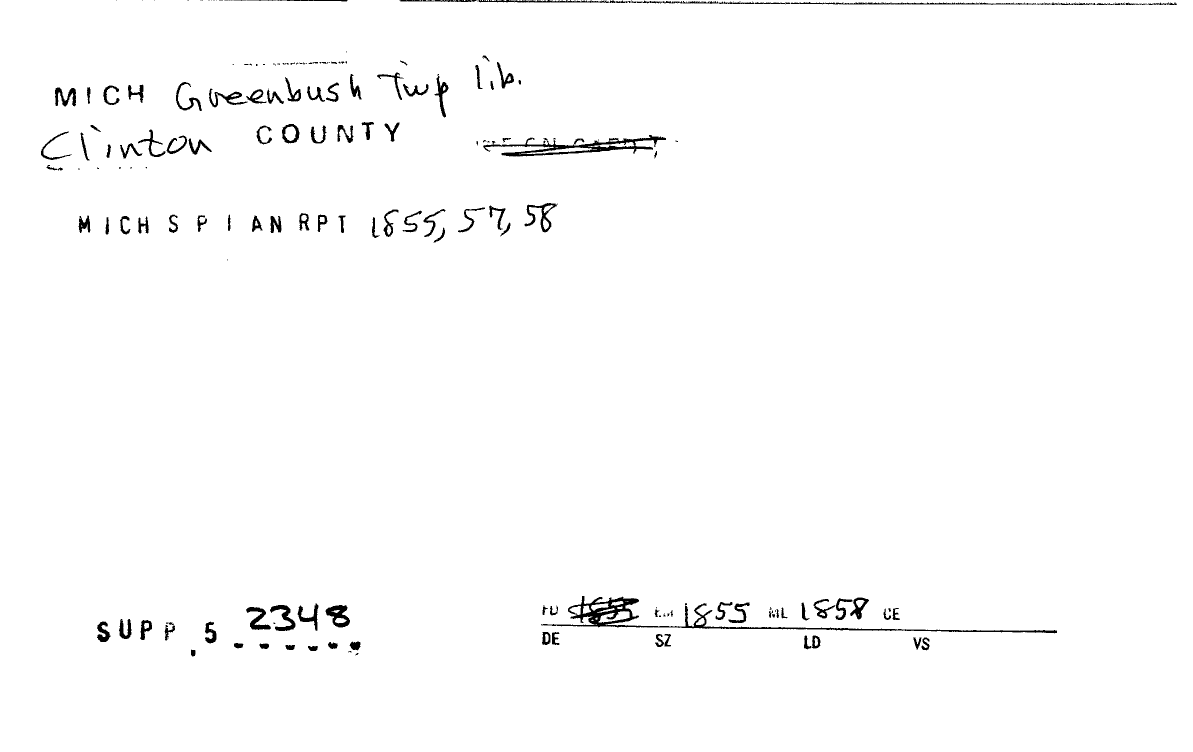 MICH Greenbush Twp lib.
Clinton COUNTY
MICH S P I AN RPT 1855, 57, 58
SUPP. 5 2348
FD 1855 EM 1855 ML 1858 CE
DE SZ LD VS